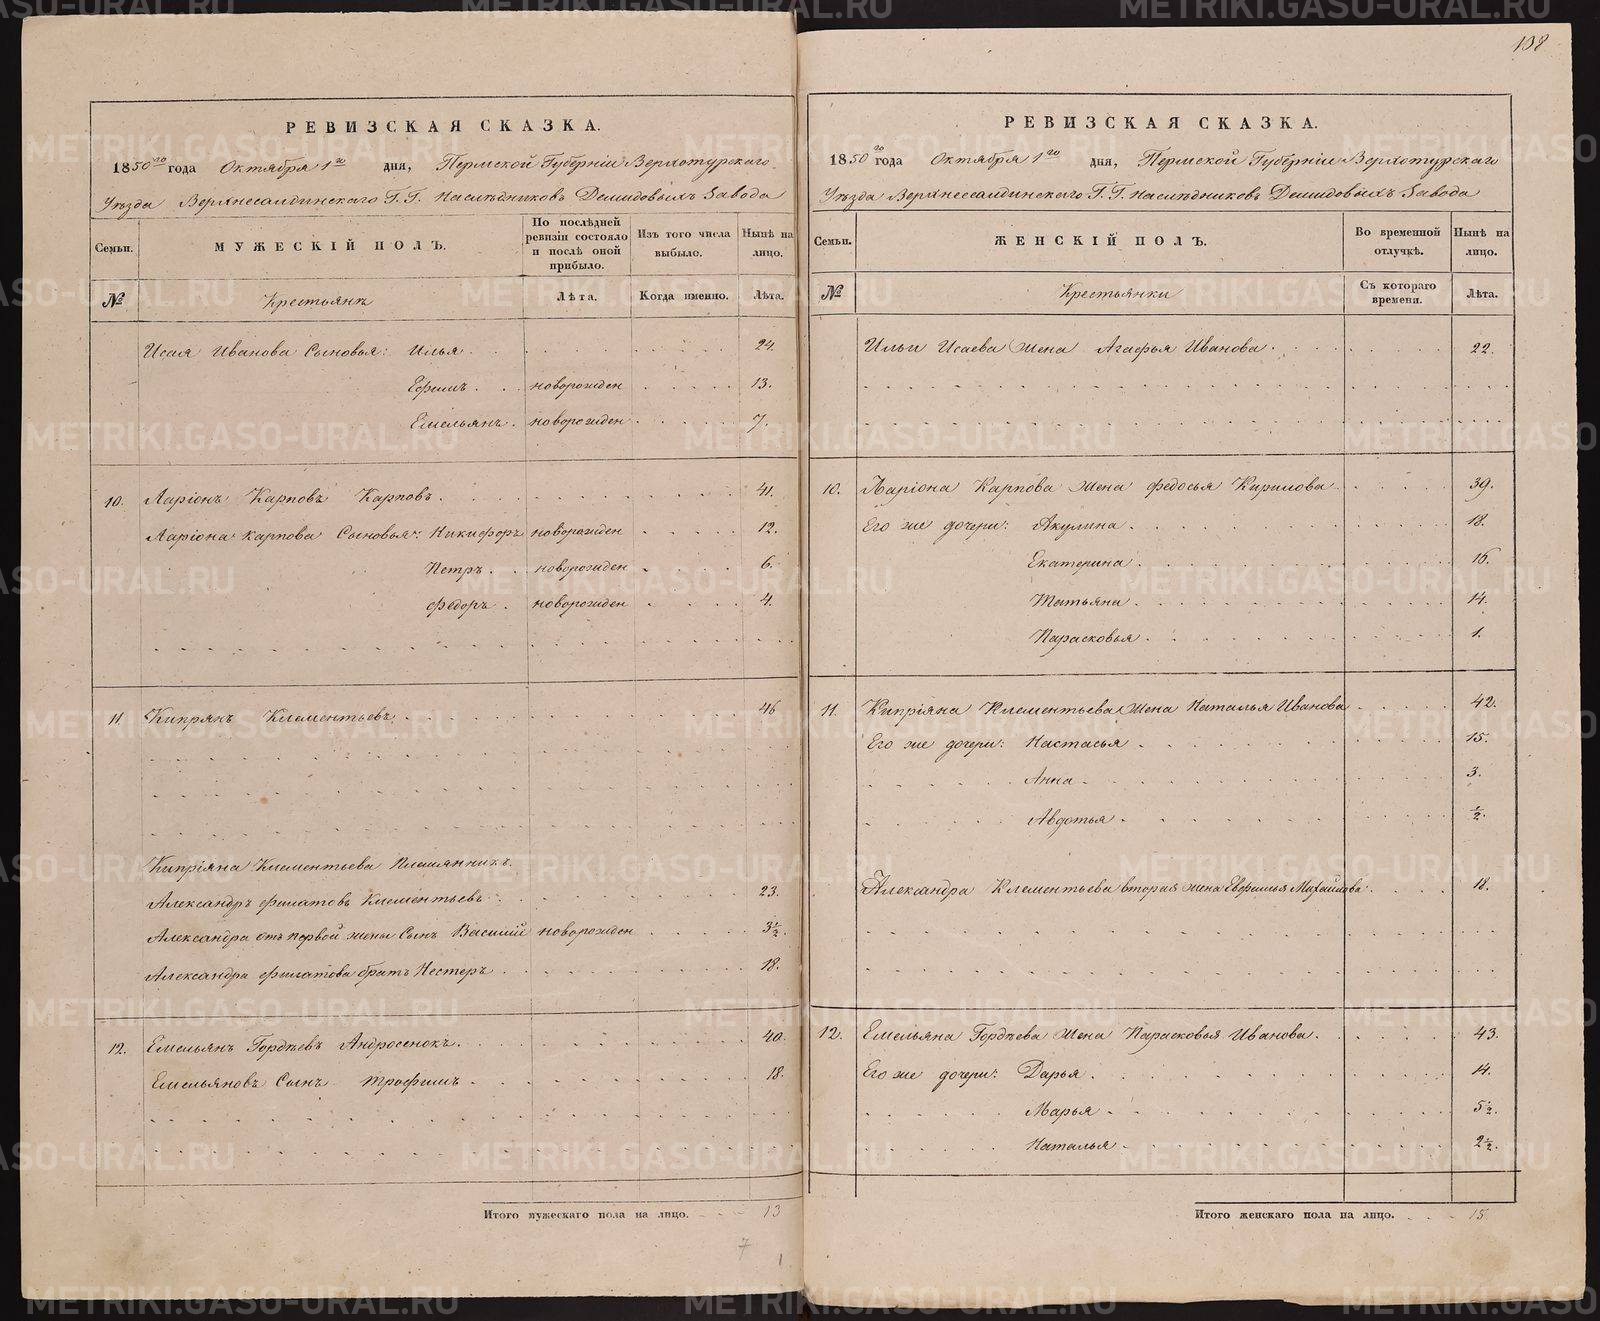 138
РЕВИЗСКАЯ СКАЗКА.
1850го года Октября 1го дня, Пермской Губерніи Верхотурскаго
Уѣзда Верхнесалдинскаго Г.Г. Наслѣдниковъ Демидовыхъ Завода
Семьи.
МУЖЕСКІЙ ПОЛЪ.
По послѣдней ревизіи состояло и послѣ оной прибыло.
Изъ того числа выбыло.
Нынѣ на лицо.
№
Крестьянъ
Лѣта.
Когда именно.
Лѣта.
Исая Иванова Сыновья: Илья 24.
Ефимъ новорожден 13.
Емельянъ новорожден 7.
10. Ларіонъ Карповъ Карповъ 41.
Ларіона Карпова Сыновья: Никифоръ новорожден 12.
Петръ новорожден 6.
Федоръ новорожден 4.
11. Кипрянъ Клементьевъ 46
Кипріяна Клементьева Племянникъ
Александръ Филатовъ Клементьевъ 23.
Александра отъ первой жены Сынъ Василий новорожден 3½.
Александра Филатова братъ Нестеръ 18.
12. Емельянъ Гордѣевъ Андросенокъ 40.
Емельяновъ Сынъ Трофимъ 18.
Итого мужескаго пола на лицо. 13
7
1
РЕВИЗСКАЯ СКАЗКА.
1850го года Октября 1го дня, Пермской Губерніи Верхотурскаго
Уѣзда Верхнесалдинскаго Г.Г. Наслѣдниковъ Демидовыхъ Завода
Семьи.
ЖЕНСКІЙ ПОЛЪ.
Во временной отлучкѣ.
Нынѣ на лицо.
№
Крестьянки
Съ котораго времени.
Лѣта.
Ильи Исаева Жена Агафья Иванова 22.
10. Ларіона Карпова жена Федосья Кирилова 39.
Его же дочери: Акулина 18.
Екатерина 16.
Татьяна 14.
Парасковья 1.
11. Кипріяна Клементьева Жена Наталья Иванова 42.
Его же дочери: Настасья 15.
Анна 3.
Авдотья ½.
Александра Клементьева вторая жена Евфимья Михайлова 18.
12. Емельяна Гордѣева Жена Парасковья Иванова 43.
Его же дочери: Дарья 14.
Марья 5½.
Наталья 2½.
Итого женскаго пола на лицо. 15
METRIKI.GASO-URAL.RU